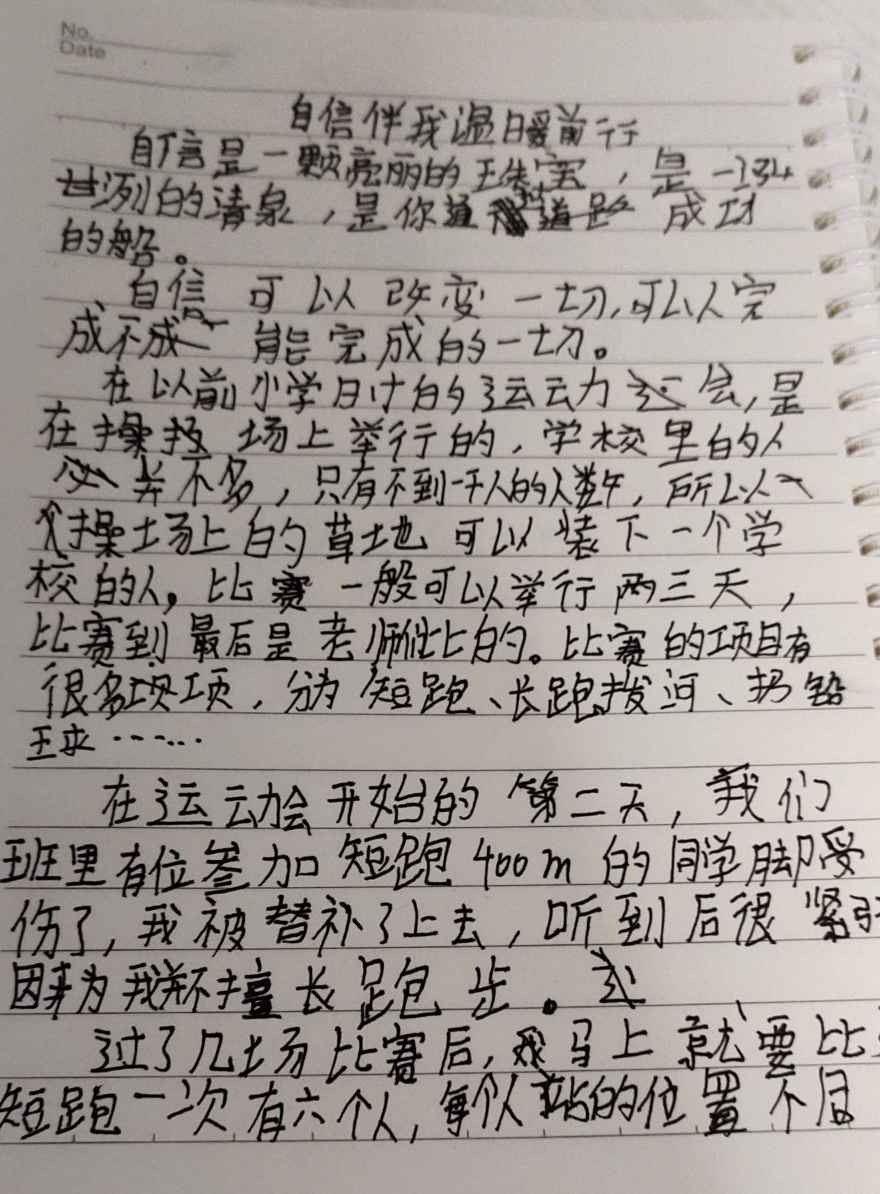 No.
Date
自信伴我温暖前行
自信是一颗亮丽的珠宝，是一
冽的清泉，是你通 道路 成功
的船。
自信 可以 改变 一切,可以人完
成不成 能完成的一切。
在以前小学时的运动 会,是
在操 场上举行的，学校里的人
差不多，只有不到一千人的人数，所以
操场上的草地 可以 装下一个学
校的人，比赛一般可以举行两三天，
比赛到最后是老师们比的。比赛的项目有
很多项，分为短跑、长跑拔河、扔铅
球……
在运动会开始的第二天，我们
班里有位参加短跑400m的同学脚受
伤了，我被替补了上去，听到后很紧张
因为我并不擅长跑步。
过了几场比赛后，我马上就要比
短跑一次有六个人，每个人站的位置不同